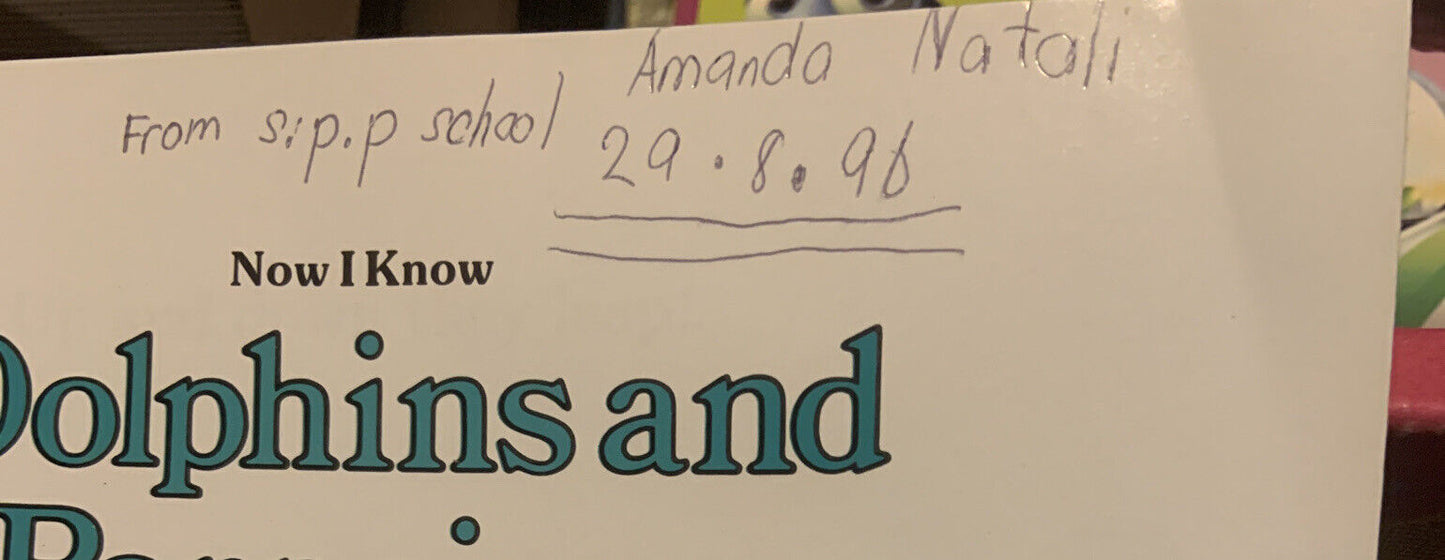 Amanda Natali
From s.p.p school 29.8.96
Now I Know
Dolphins and